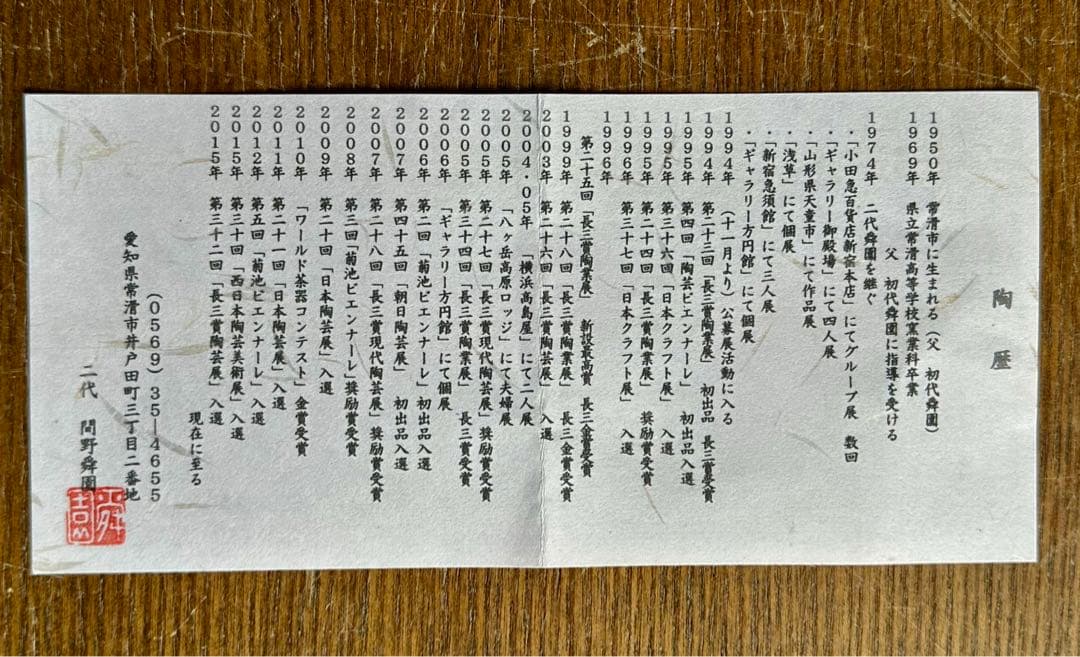 陶歴
1950年 常滑市に生まれる(父 初代舜園)
1969年 県立常滑高等学校窯業科卒業
父 初代舜園に指導を受ける
1974年 二代舜園を継ぐ
・「小田急百貨店新宿本店」にてグループ展 数回
・「ギャラリー御殿場」にて四人展
・「山形県天童市」にて作品展
・「浅草」にて個展
・「新宿急須館」にて三人展
・「ギャラリー方円館」にて個展
1994年 (十一月より)公募展活動に入る
1994年 第二十三回「長三賞陶業展」 初出品 長三賞受賞
1995年 第四回「陶芸ビエンナーレ」 初出品入選
1995年 第三十六回「日本クラフト展」 入選
1995年 第二十四回「長三賞陶業展」 奨励賞受賞
1996年 第三十七回「日本クラフト展」 入選
1996年
第二十五回「長三賞陶業展」 新設最高賞 長三金賞受賞
1999年 第二十八回「長三賞陶業展」 長三金賞受賞
2003年 第二十六回「長三賞陶芸展」 入選
2004・05年 「横浜高島屋」にて二人展
2005年 「八ヶ岳高原ロッジ」にて夫婦展
2005年 第二十七回「長三賞現代陶芸展」奨励賞受賞
2005年 第三十四回「長三賞陶業展」 長三賞受賞
2006年 「ギャラリー方円館」にて個展
2006年 第二回「菊池ビエンナーレ」初出品入選
2007年 第四十五回「朝日陶芸展」 初出品入選
2007年 第二十八回「長三賞現代陶芸展」奨励賞受賞
2008年 第三回「菊池ビエンナーレ」奨励賞受賞
2009年 第二十回「日本陶芸展」入選
2010年 「ワールド茶器コンテスト」金賞受賞
2011年 第二十一回「日本陶芸展」入選
2012年 第五回「菊池ビエンナーレ」入選
2015年 第三十回「西日本陶芸美術展」入選
2015年 第三十二回「長三賞陶芸展」入選
現在に至る
(0569)35―4655
愛知県常滑市井戸田町三丁目二番地
二代 間野舜園
舜園